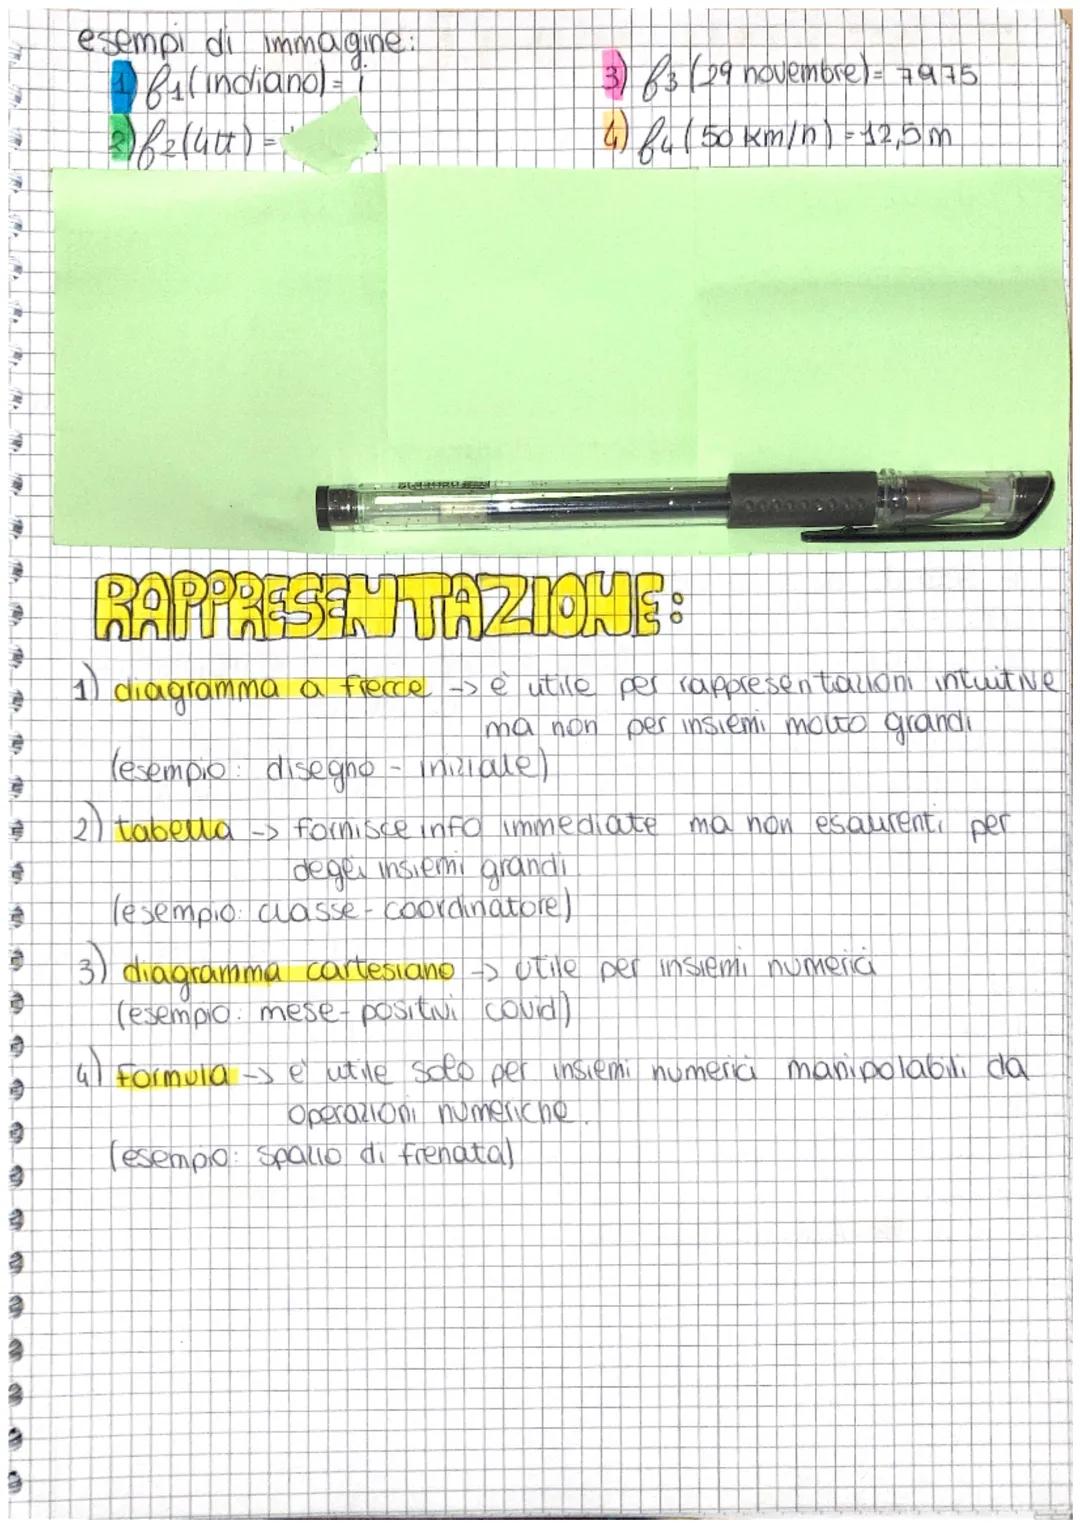 esempi di immagine:
1) f1(indiano) = i
2) f2(4tt) =
3) f3(29 novembre) = 7975
4) f4(50 km/h) = 12,5 m
RAPPRESENTAZIONE:
1) diagramma a frecce -> è utile per rappresentazioni intuitive
ma non per insiemi molto grandi
(esempio: disegno - iniziale)
2) tabella -> fornisce info immediate ma non esaurenti per
degli insiemi grandi
(esempio: classe - coordinatore)
3) diagramma cartesiano -> utile per insiemi numerici
(esempio: mese - positivi covid)
4) formula -> e' utile solo per insiemi numerici manipolabili da
operazioni numeriche.
(esempio: spazio di frenata)